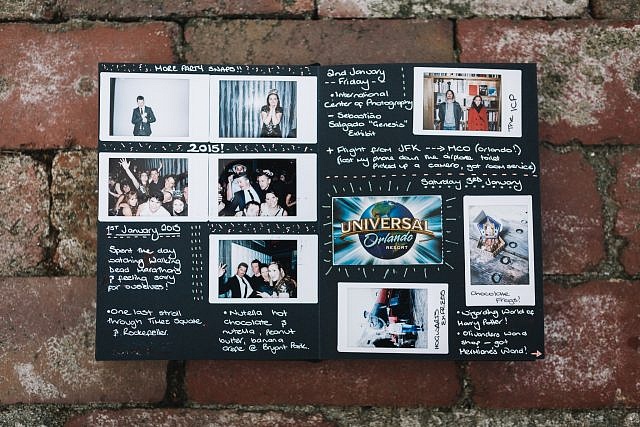 MORE PARTY SNAPS!!
2015!
1st January 2015
Spent the day
watching Walking
Dead Marathons
& feeling sorry
for ourselves!
• One last stroll
through Times Square
& Rockefeller.
• Nutella hot
chocolate &
nutella, peanut
butter, banana
crepe @ Bryant Park.
2nd January
-- Friday --
• International
Center of Photography
- Sebastião
Salgado "Genesis"
Exhibit
THE ICP
+ Flight from JFK ---> MCO (Orlando!)
(lost my phone down the airplane toilet
picked up a camera, got room service)
Saturday 3rd January
UNIVERSAL
Orlando
RESORT
Chocolate
Frogs!
HOGWARTS
EXPRESS
• Wizarding World of
Harry Potter!
• Ollivanders wand
shop - got
Hermione's Wand!